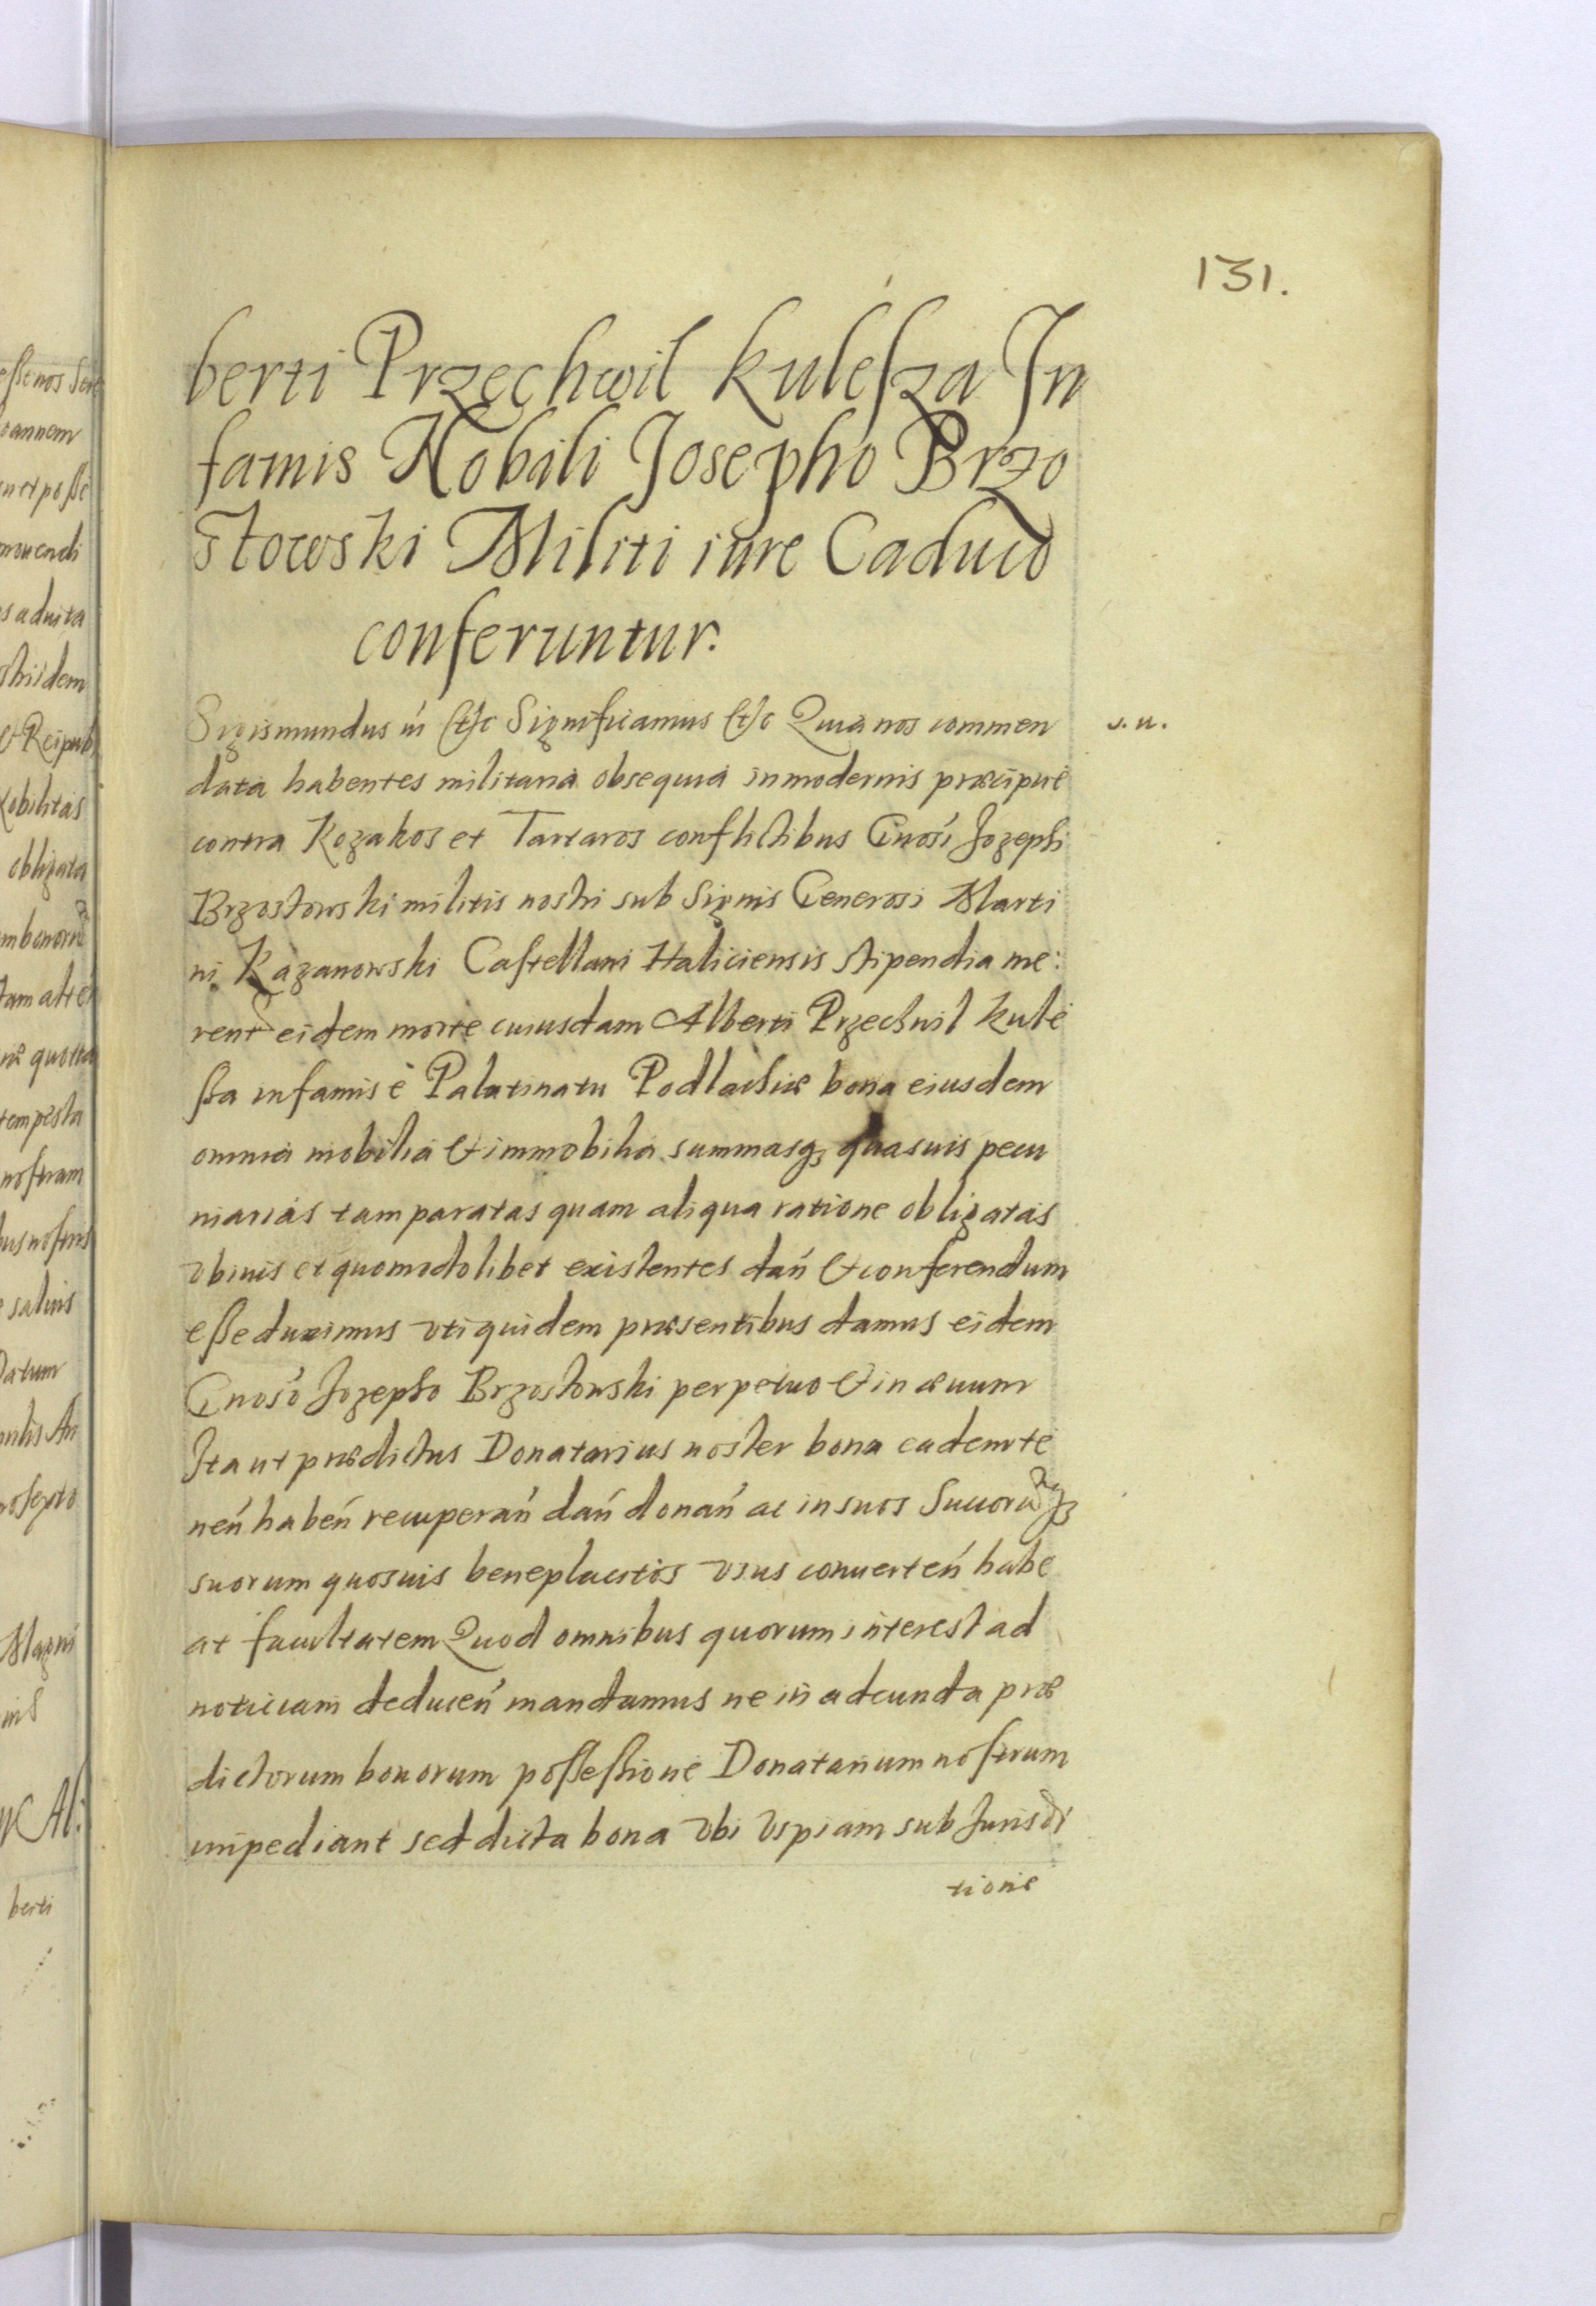 131.
berti Przechwil Kulesza In
famis Nobili Josepho Brzo
stowski Militi iure Caduco
conferuntur.
Sigismundus iii &c Significamus &c Quia nos commen
s. u.
data habentes militaria obsequia in modernis præcipuè
contra Kozakos et Tartaros conflictibus Gnosi Jozephi
Brzostowski militis nostri sub Signis Generosi Marti
ni Kazanowski Castellani Haliciensis stipendia me:
rent eidem morte cuiusdam Alberti Przechwil Kule
sza infamis è Palatinatu Podlachiæ bona eiusdem
omnia mobilia & immobilia summasq₃ quasuis pecu
niarias tam paratas quam aliqua ratione obligatas
vbiuis et quomodolibet existentes dań & conferendum
esse duximus vti quidem præsentibus damus eidem
Gnoso Jozepho Brzostowski perpetuo & in æuum
Ita ut prædictus Donatarius noster bona eadem te
neń habeń recuperań dań donań ac in suos Succorũq₃
suorum quosuis beneplacitos vsus conuerteń habe
at facultatem Quod omnibus quorum interest ad
noticiam deduceń mandamus ne in adeunda præ
dictorum bonorum possessione Donatarium nostrum
impediant sed dicta bona vbi vspiam sub Jurisdi
tione
esse nos Sere
oannem
en et posse
mouendi
idem
& Reipub
Nobilitas
obligata
tam alte
quotta
tempesta
nostram
bus nostris
e saluis
Datum
nosepto
Magni
nis
Al:
berti